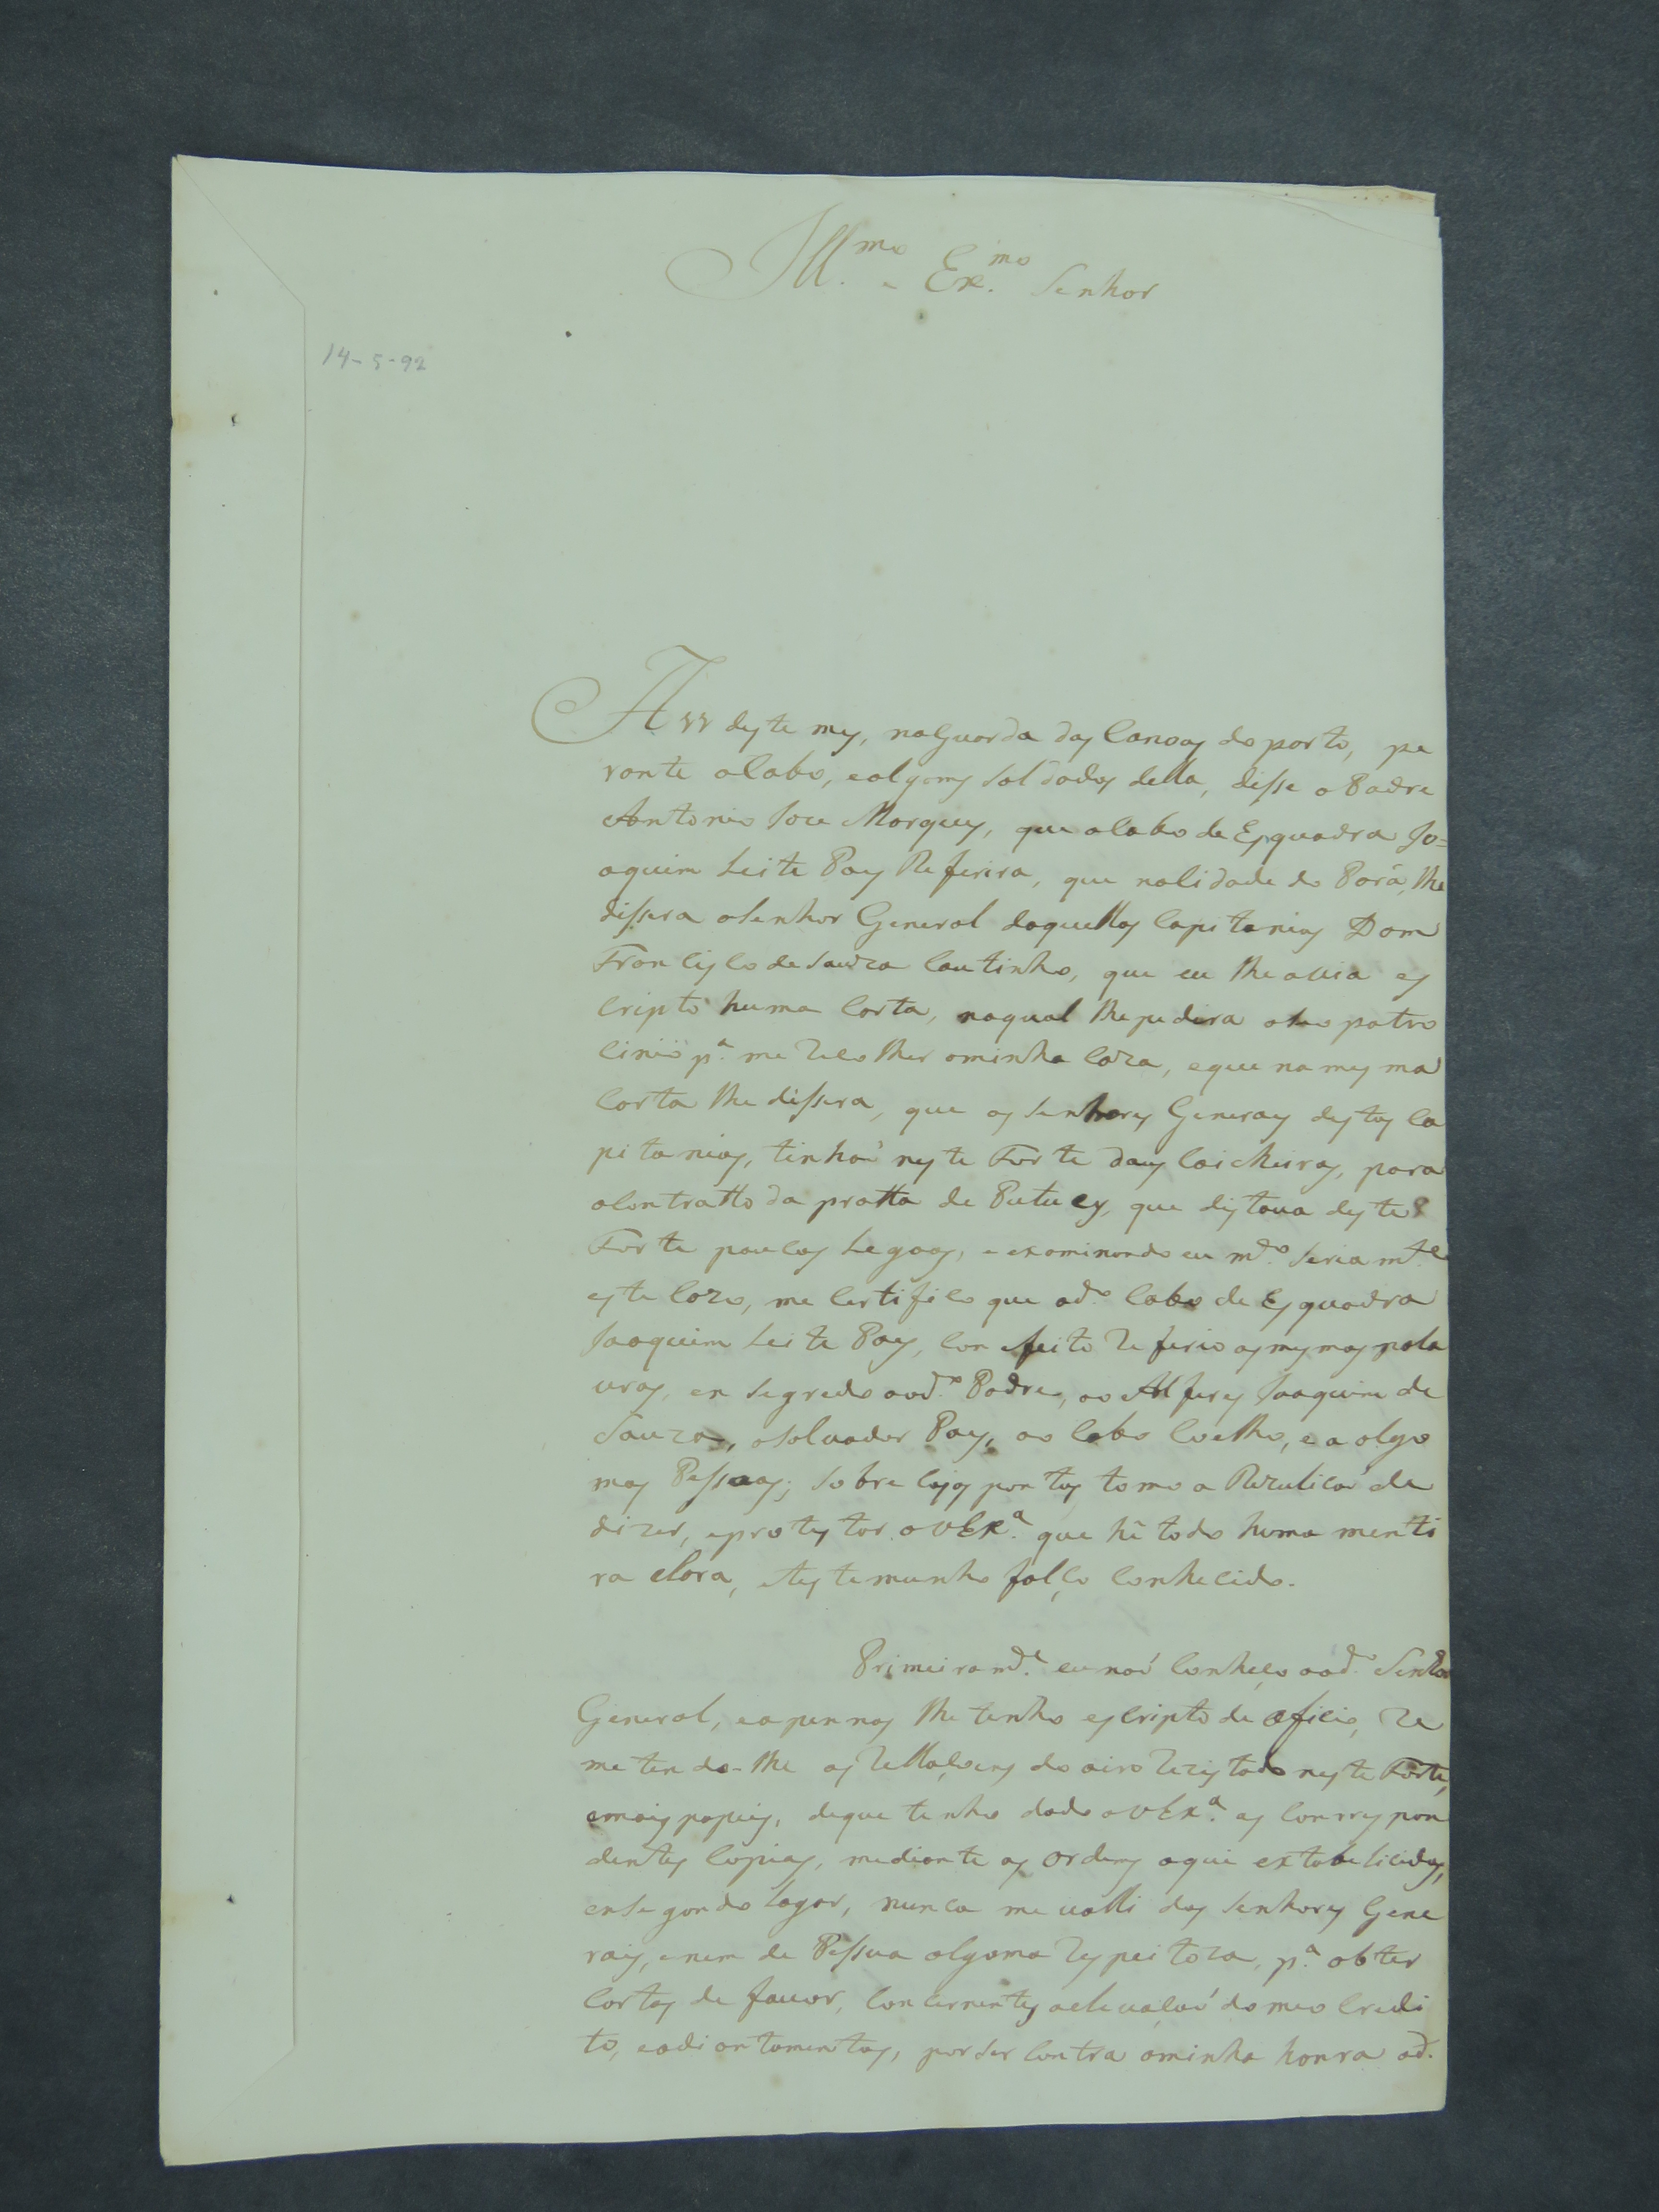 Ill.mo e Ex.mo Senhor
14-5-92
A 11 deste mes, na Guarda das Canoas do porto, pe
rante o Cabo, e algoms Soldados della, disse o Padre
Antonio Joze Marques, que o Cabo de Esquadra Jo=
aquim Leite Paes Referira, que na Cidade do Pará, lhe
dissera o Senhor General daquellas Capitanias Dom
Francisco de Sauza Cautinho, que eu lhe avia es
cripto huma Carta, na qual lhe pedira o seo patro
cinio p.a me recolher a minha Caza, e que na mesma
Carta lhe dissera, que os Senhores Generaes destas Ca
pitanias, tinhaõ neste Forte duas Caicheiras, para
o Contratto da pratta de Putucy, que distava deste
Forte poucas Legoas, e examinando eu m.do seria m.te
este Cazo, me Certifico que o d.o Cabo de Esquadra
Joaquim Leite Paes, Com efeito referio as mesmas pala
vras, en segredo ao d.o Padre, ao Alferes Joaquim de
Sauza, o Salvador Paes, ao Cabo Coelho, e a algo
mas Pessoas; Sobre Cujos pontos tomo a Rezulucaõ de
dizer, e protestar a V Ex.a que hê todo huma menti
ra Clara, e testemunho falço Conhecido.
Primeiram.te eu naõ Conheço ao d.o Senhor
General, e apennas lhe tenho escripto de oficio, re
metendo-lhe as rellaçoens do oiro rezistado neste Forte,
e mais papeis, de que tenho dado a V Ex.a as Conrrespon
dentes Copias, mediante as Ordens aqui extabelicidas,
en segondo Lugar, nunca me valli dos Senhores Gene
raes, e nem de Pessua algoma respeitoza, p.a obter
Cartas de favor, Concernentes a elevaçaõ do meo Credi
to, e adiantamentos, por ser Contra a minha honra a d.